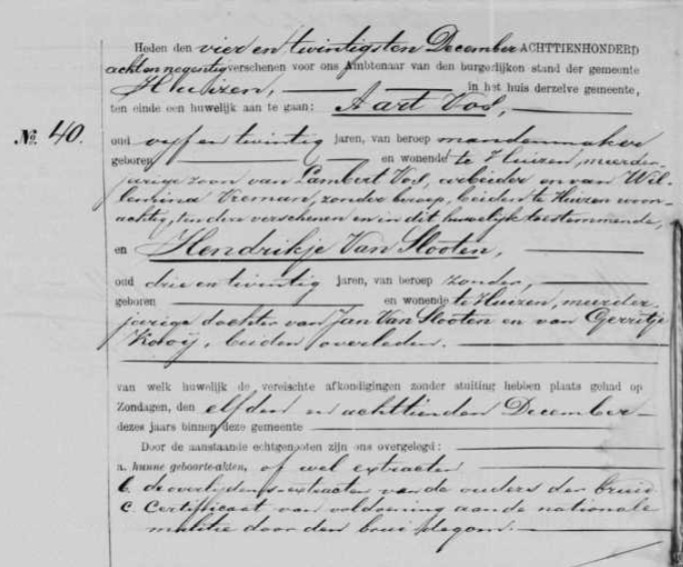 Heden den vier en twintigsten December ACHTTIENHONDERD
acht en negentig verschenen voor ons Ambtenaar van den burgerlijken stand der gemeente
Huizen, in het huis derzelve gemeente,
ten einde een huwelijk aan te gaan: Aart Vos,
No. 40.
oud vijf en twintig jaren, van beroep mandenmaker
geboren en wonende te Huizen, meerder-
jarige zoon van Lambert Vos, arbeider en van Wil-
lemina Vreman, zonder beroep, beiden te Huizen woon-
achtig, hierbij verschenen en in dit huwelijk toestemmende,
en Hendrikje Van Slooten,
oud drie en twintig jaren, van beroep zonder,
geboren en wonende te Huizen, meerder-
jarige dochter van Jan Van Slooten en van Gerritje
Kooij, beiden overleden.
van welk huwelijk de vereischte afkondigingen zonder stuiting hebben plaats gehad op
Zondagen, den elfden en achttienden December
dezes jaars binnen deze gemeente
Door de aanstaande echtgenooten zijn ons overgelegd:
a. hunne geboorte-akten, of wel extracten
b. de overlijdens-extracten van de ouders der bruid
c. Certificaat van voldoening aan de nationale
militie door den bruidegom.